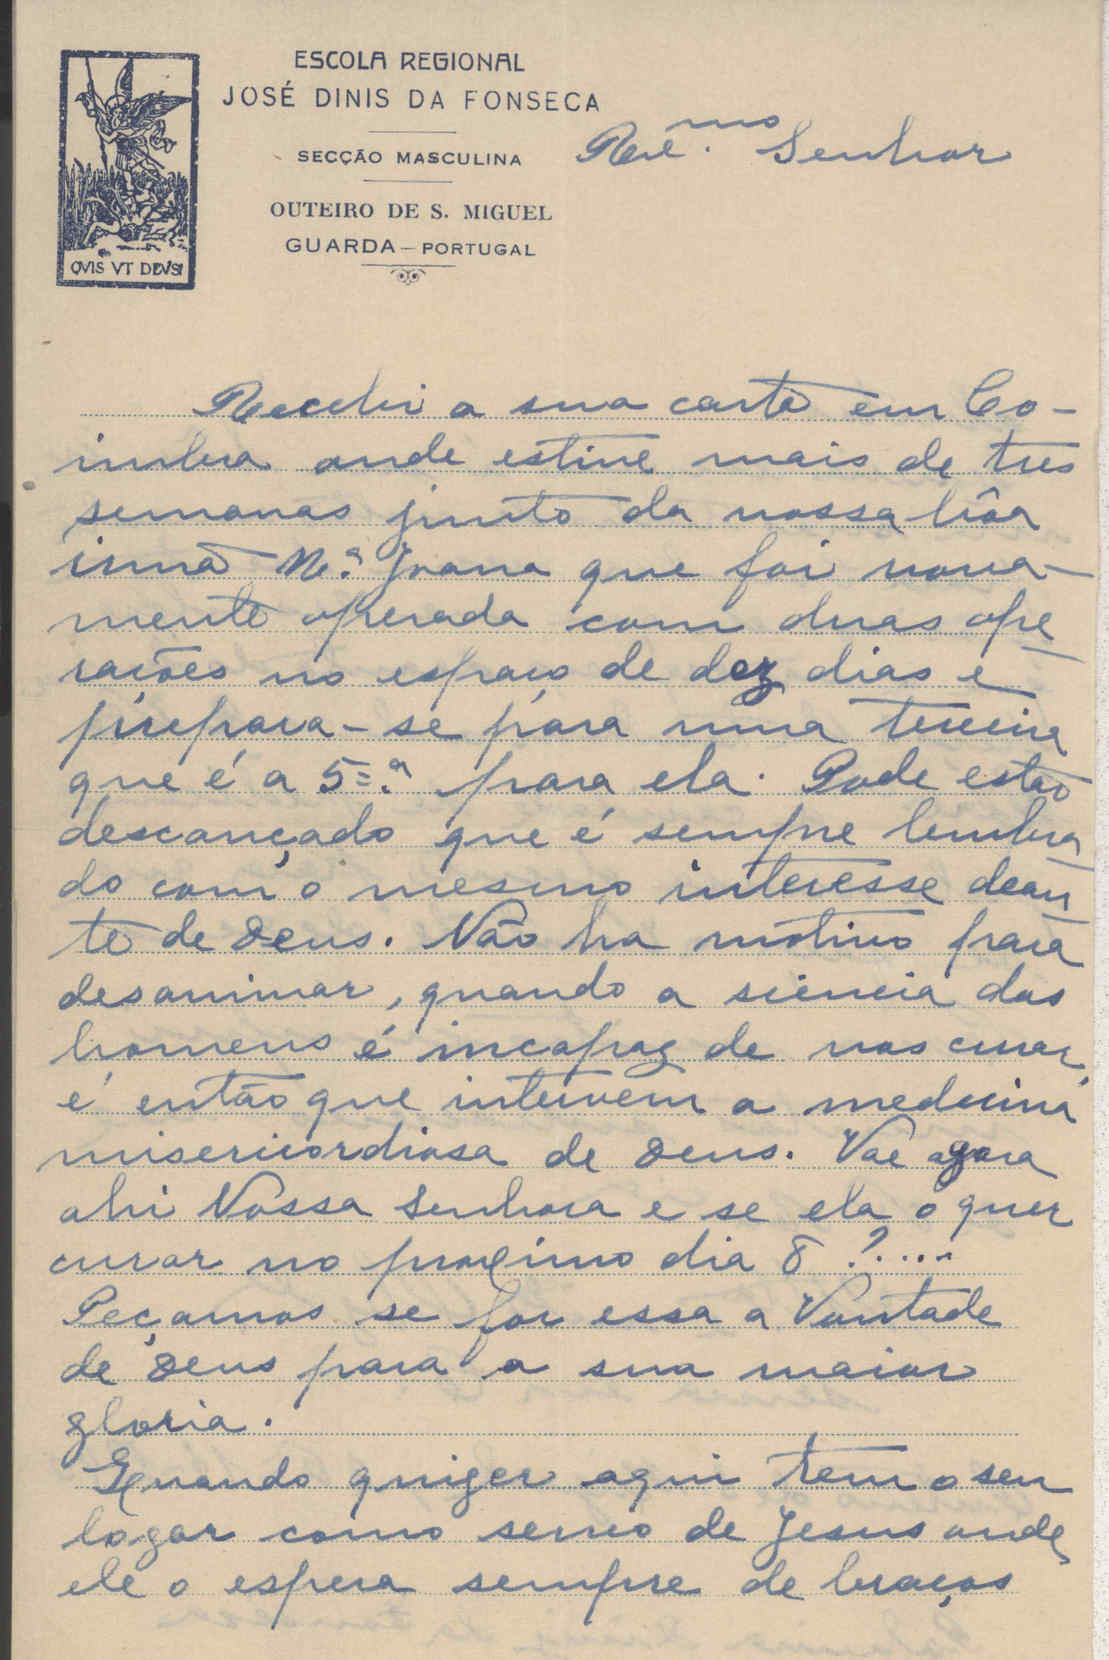 ESCOLA REGIONAL
JOSÉ DINIS DA FONSECA
SECÇÃO MASCULINA
OUTEIRO DE S. MIGUEL
GUARDA – PORTUGAL
QVIS VT DEVS!
Rev.mo Senhor
Recebi a sua carta em Co-
imbra onde estive mais de tres
semanas junto da nossa bôa
irmã M.ª Joana que foi nova-
mente operada com duas ope
rações no espaço de dez dias e
prepara-se para uma terceira
que é a 5.ª para ela. Pode estar
descançado que é sempre lembra
do com o mesmo interesse dean
te de Deus. Não ha motivo para
desanimar, quando a siencia dos
homens é incapaz de nos curar,
é então que intervem a medicina
misericordiosa de Deus. Vae agora
ahi Nossa Senhora e se ela o quer
curar no proximo dia 8 ?....
Peçamos se for essa a Vontade
de Deus para a sua maior
gloria.
Quando quizer aqui tem o seu
logar como servo de Jesus onde
ele o espera sempre de braços